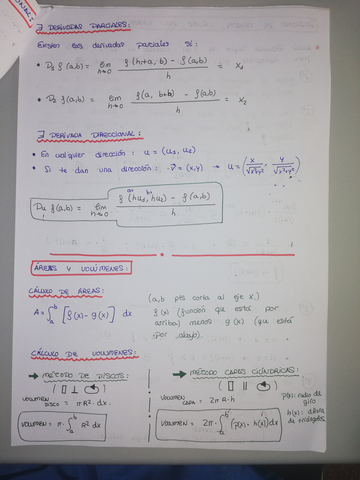 ∃ DERIVADAS PARCIALES:
Existen las derivadas parciales si:
• D₁ f(a,b) = lim h→0 f(h+a, b) - f(a,b) / h = x₁
• D₂ f(a,b) = lim h→0 f(a, b+h) - f(a,b) / h = x₂
∃ DERIVADA DIRECCIONAL:
• En cualquier dirección: u = (u₁, u₂)
• Si te dan una dirección: v⃗ = (x,y) → u = (x/√x²+y², y/√x²+y²)
Du f(a,b) = lim h→0 f(a+hu₁, b+hu₂) - f(a,b) / h
ÁREAS Y VOLÚMENES:
CÁLCULO DE ÁREAS:
A = ∫ₐᵇ [f(x) - g(x)] dx
(a,b pts corta al eje x,)
f(x) (función que está por
arriba) menos g(x) (que está
por abajo).
CÁLCULO DE VOLUMENES:
→ MÉTODO DE DISCOS:
VOLUMEN DISCO = πR² · dx.
VOLUMEN = π · ∫ₐᵇ R² dx
→ MÉTODO CAPAS CILÍNDRICAS:
VOLUMEN CAPA = 2πR·h
p(x): radio de
giro
h(x): altura
de rectángulos
VOLUMEN = 2π · ∫ₐᵇ (p(x) · h(x)) dx